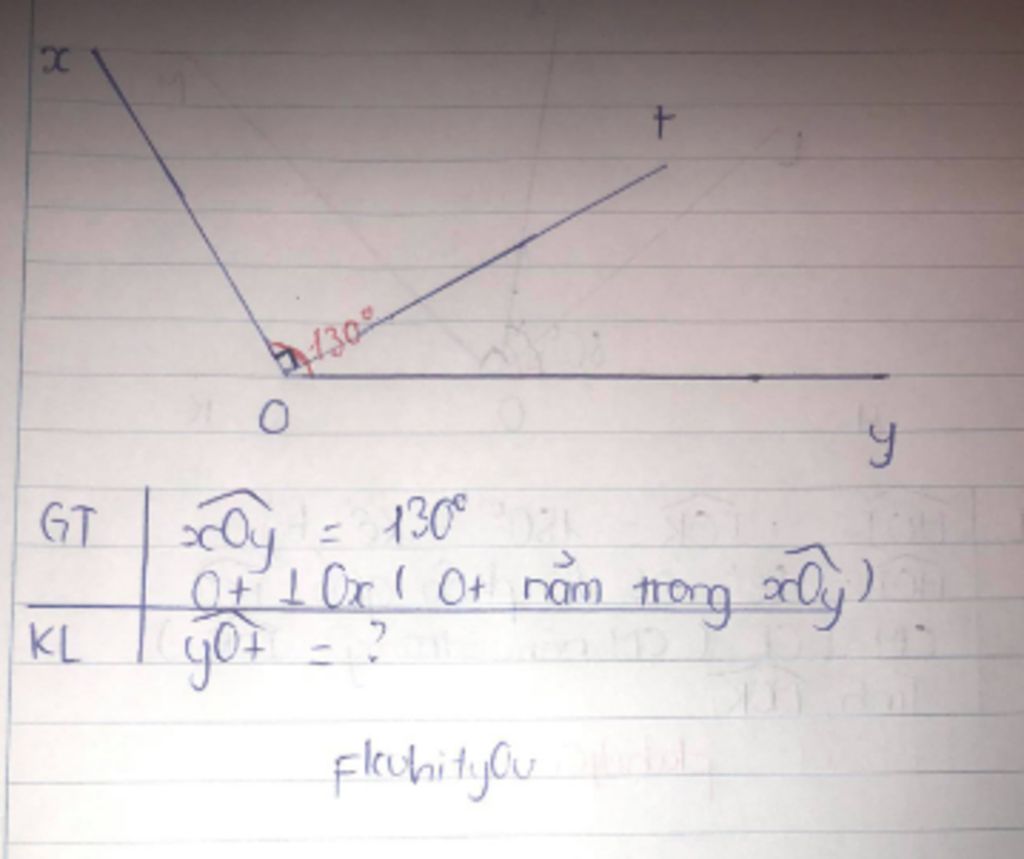 x
t
130°
O
y
GT xOy = 130°
Ot ⊥ Ox ( Ot nằm trong xOy )
KL yOt = ?
FkuhityOu